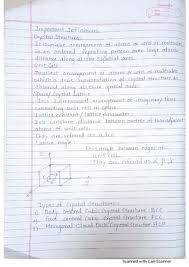 Important Definitions
Crystal Structure:
It involves arrangement of atoms or ions or molecules
in an ordered repeating pattern over large atomic
distance along all three spatial axes.
Unit Cell
Smallest arrangement of atoms or ions or molecules
which is a representation of crystal structure
Space / Crystal Lattice
Three dimensional arrangement of imaginary lines
connecting
Lattice constant / lattice parameter:
It is constant distance between points of two adjacent
atoms of unit cell.
They are denoted as a,b,c
Lattice Angle:
It is angle between edges of
unit cell.
They are denoted as
Types of Crystal Structure:
1) Body Centred Cubic Crystal Structure BCC
2) Face Centred Cubic Crystal Structure FCC
3) Hexagonal Closed Pack Crystal Structure HCP
Scanned with CamScanner